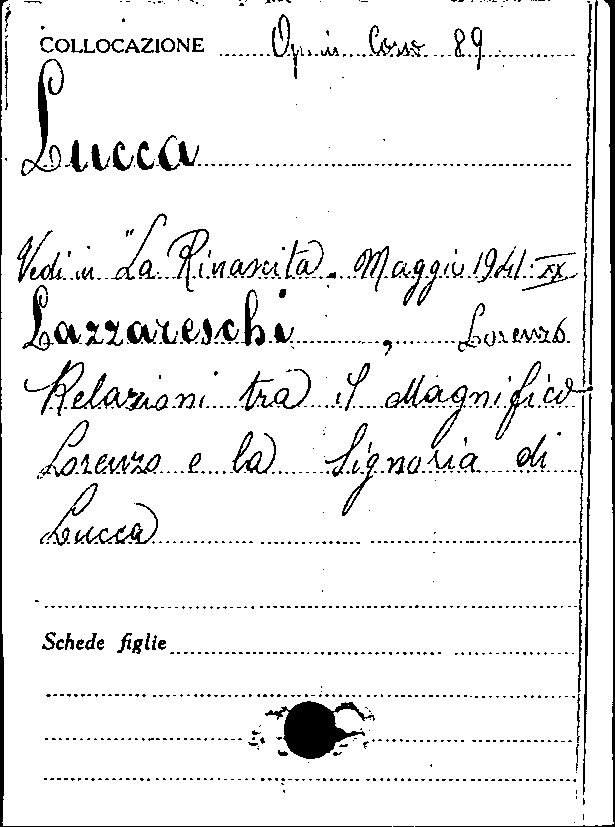 COLLOCAZIONE Op. in Corso 89
Lucca
Vedi in "La Rinascita. Maggio 1941-XX
Lazzareschi, Lorenzo
Relazioni tra il Magnifico
Lorenzo e la Signoria di
Lucca
Schede figlie